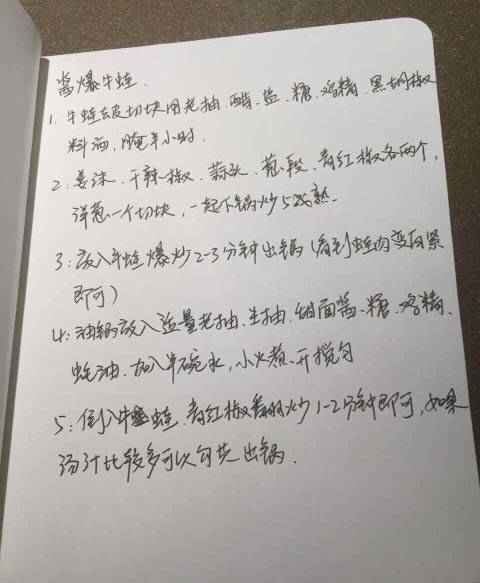 酱爆牛蛙.
1. 牛蛙去皮切块用老抽、醋、盐、糖、鸡精、黑胡椒
料酒,腌半小时.
2: 姜沫、干辣椒、蒜头、葱段、青红椒各两个,
洋葱一个切块,一起下锅炒5成熟.
3: 放入牛蛙爆炒2-3分钟出锅(看到蛙肉变白紧
即可)
4: 油锅放入适量老抽、生抽、甜面酱、糖、鸡精、
蚝油、加入半碗水,小火煮开搅匀
5: 倒入牛蛙、青红椒翻炒1-2分钟即可,如果
汤汁比较多可以勾芡出锅.